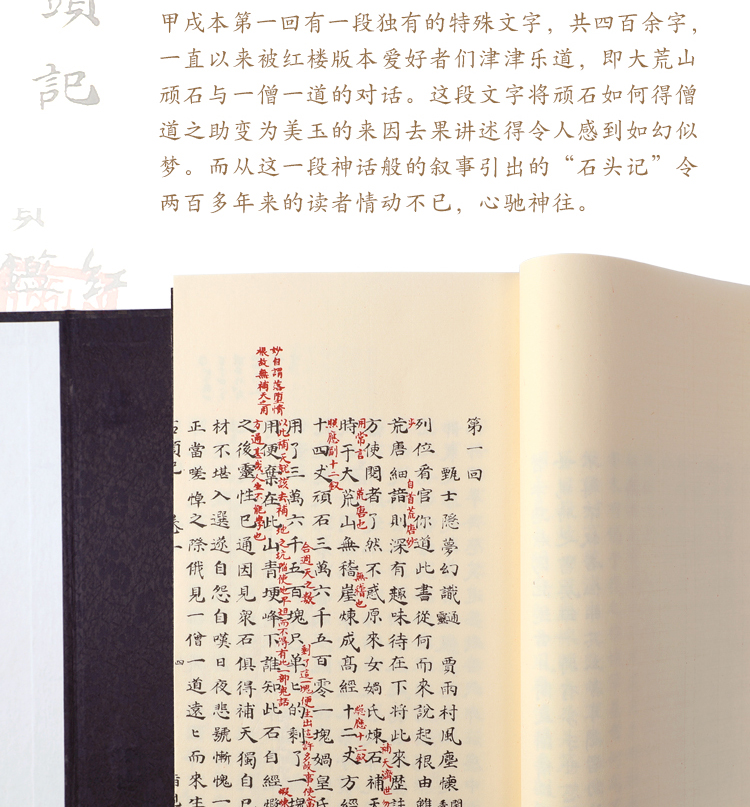 記
甲戌本第一回有一段独有的特殊文字，共四百余字，
一直以来被红楼版本爱好者们津津乐道，即大荒山
顽石与一僧一道的对话。这段文字将顽石如何得僧
道之助变为美玉的来因去果讲述得令人感到如幻似
梦。而从这一段神话般的叙事引出的“石头记”令
两百多年来的读者情动不已，心驰神往。
第一回
甄士隐夢幻識通靈 賈雨村風塵懷
列位看官你道此書從何而來說起根由雖
自首荒唐妙
荒唐細諳則深有趣味待在下將此來歷註
補天濟世勿
方使閱者了然不惑原來女媧氏煉石補天
用常言
荒唐也
無稽也
照應十二釵
時于大荒山無稽崖煉成高經十二丈方經
照應副十二釵
十四丈頑石三萬六千五百零一塊媧皇氏
合週天之數
剩了這一塊便生出這許多故事使
用了三萬六千五百塊只单匕的剩了一塊
妙自謂落墮情
根故無補天之用
用便棄在此山青埂峰下誰知此石自經
之後靈性已通因見眾石俱得補天獨自己
材不堪入選遂自怨自嘆日夜悲號慚愧一
正當嗟悼之際俄見一僧一道遠匕而來生
四